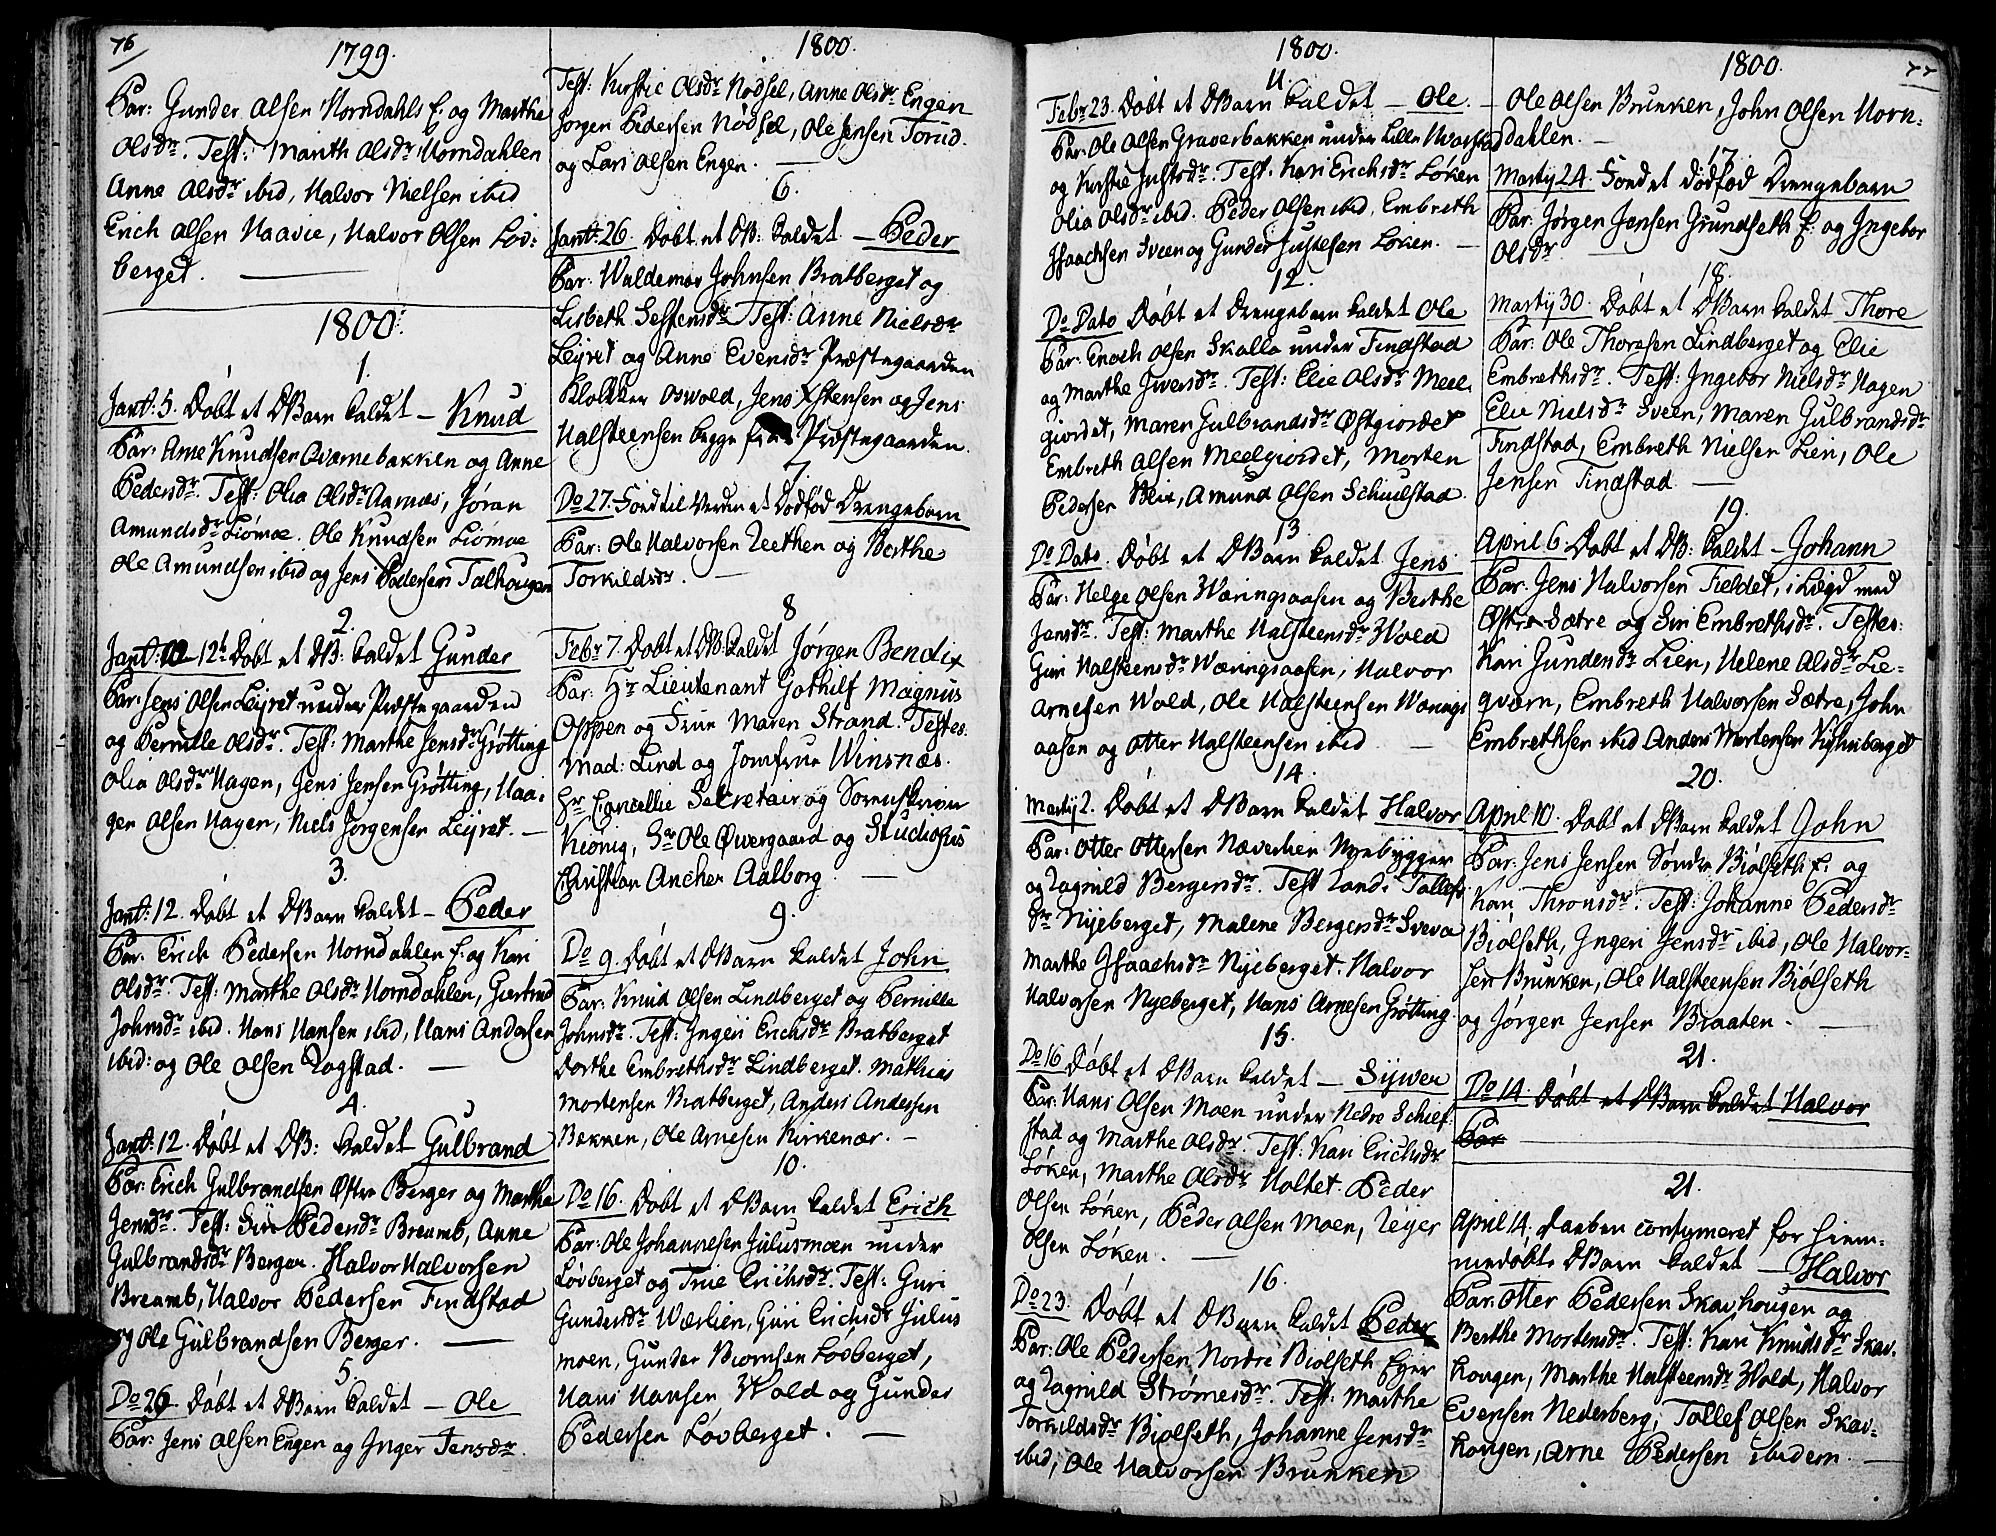 76
1799.
Par: Gunder Olsen Horndahls E. og Marthe
Olsdr. Test: Marith Olsdr Horndahlen
Anne Olsdr ibid, Halvor Nielsen ibid
Erich Olsen Haavie, Halvor Olsen Lov:
berget.
1800.
1.
Jani: 5. Døbt et DBarn kaldet – Knud
Par: Arne Knudsen Qvarnebakken og Anne
Pedersdr. Test: Olia Olsdr Aarnæs, Jøran
Amundsdr Liømoe. Ole Knudsen Liømoe
Ole Amundsen ibid og Jens Pedersen Talhougen
2.
Jani: 12t Døbt et DB: kaldet Gunder
Par: Jens Olsen Leyret under Præstegaarden
og Pernille Olsdr. Test: Marthe Jensdr Grøtting
Olia Olsdr Hagen, Jens Jensen Grøtting, Haa-
gen Olsen Hagen, Niels Jørgensen Leyret. –
3.
Jani: 12. Døbt et DBarn kaldet – Peder
Par: Erich Pedersen Horndahlen E. og Kari
Olsdr. Test: Marthe Olsdr Horndahlen, Giertrud
Johnsdr ibid. Hans Hansen ibid, Hans Andersen
ibid: og Ole Olsen Rogstad. –
4.
Jani: 12. Døbt et DB: kaldet Gulbrand
Par: Erich Gulbrandsen Østre Berger og Marthe
Jensdr. Test: Siri Pedersdr Breumb, Anne
Gulbrandsdr Berger. Halvor Halvorsen
Breumb, Halvor Pedersen Findstad
og Ole Gulbrandsen Berger. –
5.
Do 26 Døbt et DBarn kaldet – Ole
Par: Jens Olsen Engen og Inger Jensdr.
1800.
Test: Kirstie Olsdr Nødsel, Anne Olsdr Engen
Jørgen Pedersen Nødsel, Ole Jensen Torud
og Lars Olsen Engen. –
6.
Jani: 26. Døbt et DB: kaldet – Peder
Par: Waldemar Johnsen Bratberget og
Lisbeth Seffensdr Test: Anne Nielsdr
Leyret og Anne Evensdr Præstegaarden
Klokker Oswold, Jens Xstensen og Jens
Halsteensen begge fra Præstegaarden.
7.
Do 27. Fød til Verden et Dødfød Drengebarn
Par: Ole Halvorsen Teethen og Berthe
Torkildsdr. –
8
Febr 7. Døbt et DB: kaldet Jørgen Bendix
Par: Hr Lieutenant Gothilf Magnus
Oppen og Frue Maren Strand. Testes:
Mad: Lind og Jomfrue Winsnæs.
Hr Cancellie Secretair og Sorenskriver
Kionig, Sr Ole Øvergaard og Studiosus
Christian Ancher Aalborg. –
9.
Do 9. Døbt et DBarn kaldet John
Par: Knud Olsen Lindberget og Pernille
Johnsdr. Test: Ingeri Erichsdr Bratberget
Dorthe Embrethsdr Lindberget. Mathias
Mortensen Bratberget, Anders Andersen
Bakken, Ole Arnesen Kirkenær. –
10.
Do 16. Døbt et DBarn kaldet Erich
Par: Ole Johannesen Julusmoen under
Løvberget og Trie Erichsdr. Test: Guri
Gundersdr Wærlien, Guri Erichsdr Julus
moen, Gunder Biørnsen Løvberget,
Hans Hansen Wold og Gunder
Pedersen Løvberget. –
1800.
11
Febr 23. Døbt et DBarn kaldet – Ole. –
Par: Ole Olsen Graverbakken under Lille
og Kirstie Justsdr. Test: Kari Erichsdr Løken
Olia Olsdr ibid. Peder Olsen ibid, Embreth
Isaachsen Sveen og Gunder Justesen Løken. –
12.
Do Dato Døbt et Drengebarn kaldet Ole
Par: Enoch Olsen Skalla under Findstad
og Marthe Iversdr. Test: Elie Olsdr Meel-
giordet, Maren Gulbrandsdr Østgiordet
Embreth Olsen Meelgiordet, Morten
Pedersen Blix, Amund Olsen Schiulstad.
13
Do Dato. Døbt et DBarn kaldet Jens
Par: Helge Olsen Wæringsaasen og Berthe
Jensdr. Test: Marthe Halsteensdr Wold
Guri Halsteensdr Wæringsaasen, Halvor
Arnesen Wold, Ole Halsteensen Wærings
aasen og Otter Halsteensen ibid –
14.
Martij 2. Døbt et DBarn kaldet Halvor
Par: Otter Ottersen Næverlien Nyebygger
og Ragnild Bergersdr. Test Randi Tollefs
dr Nyeberget, Malene Bergersdr Svea
Marthe Isaachsdr Nyeberget. Halvor
Halvorsen Nyeberget, Hans Arnesen Grøtting.
15.
Do 16 Døbt et DBarn kaldet – Syver
Par: Hans Olsen Moen under Nedre Schief
stad og Marthe Olsdr. Test: Kari Erichsdr
Løken, Marthe Olsdr Holtet. Peder
Olsen Løken, Peder Olsen Moen, Reyer
Olsen Løken. –
16.
Do 23. Døbt et DBarn kaldet Peder
Par: Ole Pedersen Nordre Biølseth Eyer
og Ragnild Strømesdr. Test: Marthe
Torkildsdr Biølseth, Johanne Jensdr
ibid, Ole Halvorsen Brunken
77
1800.
– Ole Olsen Brunken, John Olsen Horn-
dahlen. –
17.
Martij 24. Fød et dødfød Drengebarn
Par: Jørgen Jensen Grundseth E. og Ingebor
Olsdr –
18.
Martij 30. Døbt et DBarn kaldet Thore
Par: Ole Thoresen Lindberget og Elie
Embrethsdr. Test: Ingebor Nielsdr Hagen
Elie Nielsdr Sveen, Maren Gulbrandsdr
Findstad, Embreth Nielsen Lien, Ole
Jensen Findstad –
19.
April 6. Døbt et DB: kaldet – Johann
Par: Jens Halvorsen Fieldet, i Lægd med
Østre Sætre og Siri Embrethsdr. Testes:
Kari Gundersdr Lien, Helene Olsdr Lie-
qværn, Embreth Halvorsen Sætre, John
Embrethsen ibid Anders Mortensen Kiølnberget
20.
April 10. Døbt et DBarn kaldet John
Par: Jens Jensen Søndre Biølseth E. og
Kari Thronsdr. Test: Johanne Pedersdr
Biølseth, Ingeri Jensdr ibid, Ole Halvor-
sen Brunken, Ole Halsteensen Biølseth
og Jørgen Jensen Braaten. –
21.
Do 14. Døbt et DBarn kaldet Halvor
Par
21.
April 14. Daaben confirmeret for hiem-
medøbte DBarn kaldet – Halvor
Par: Otter Pedersen Skavhougen og
Berthe Mortensdr. Test: Kari Knudsdr Skav-
hougen, Marthe Halsteensdr Wold, Halvor
Evensen Nederberg, Tollef Olsen Skav-
hougen, Arne Pedersen ibidem. –